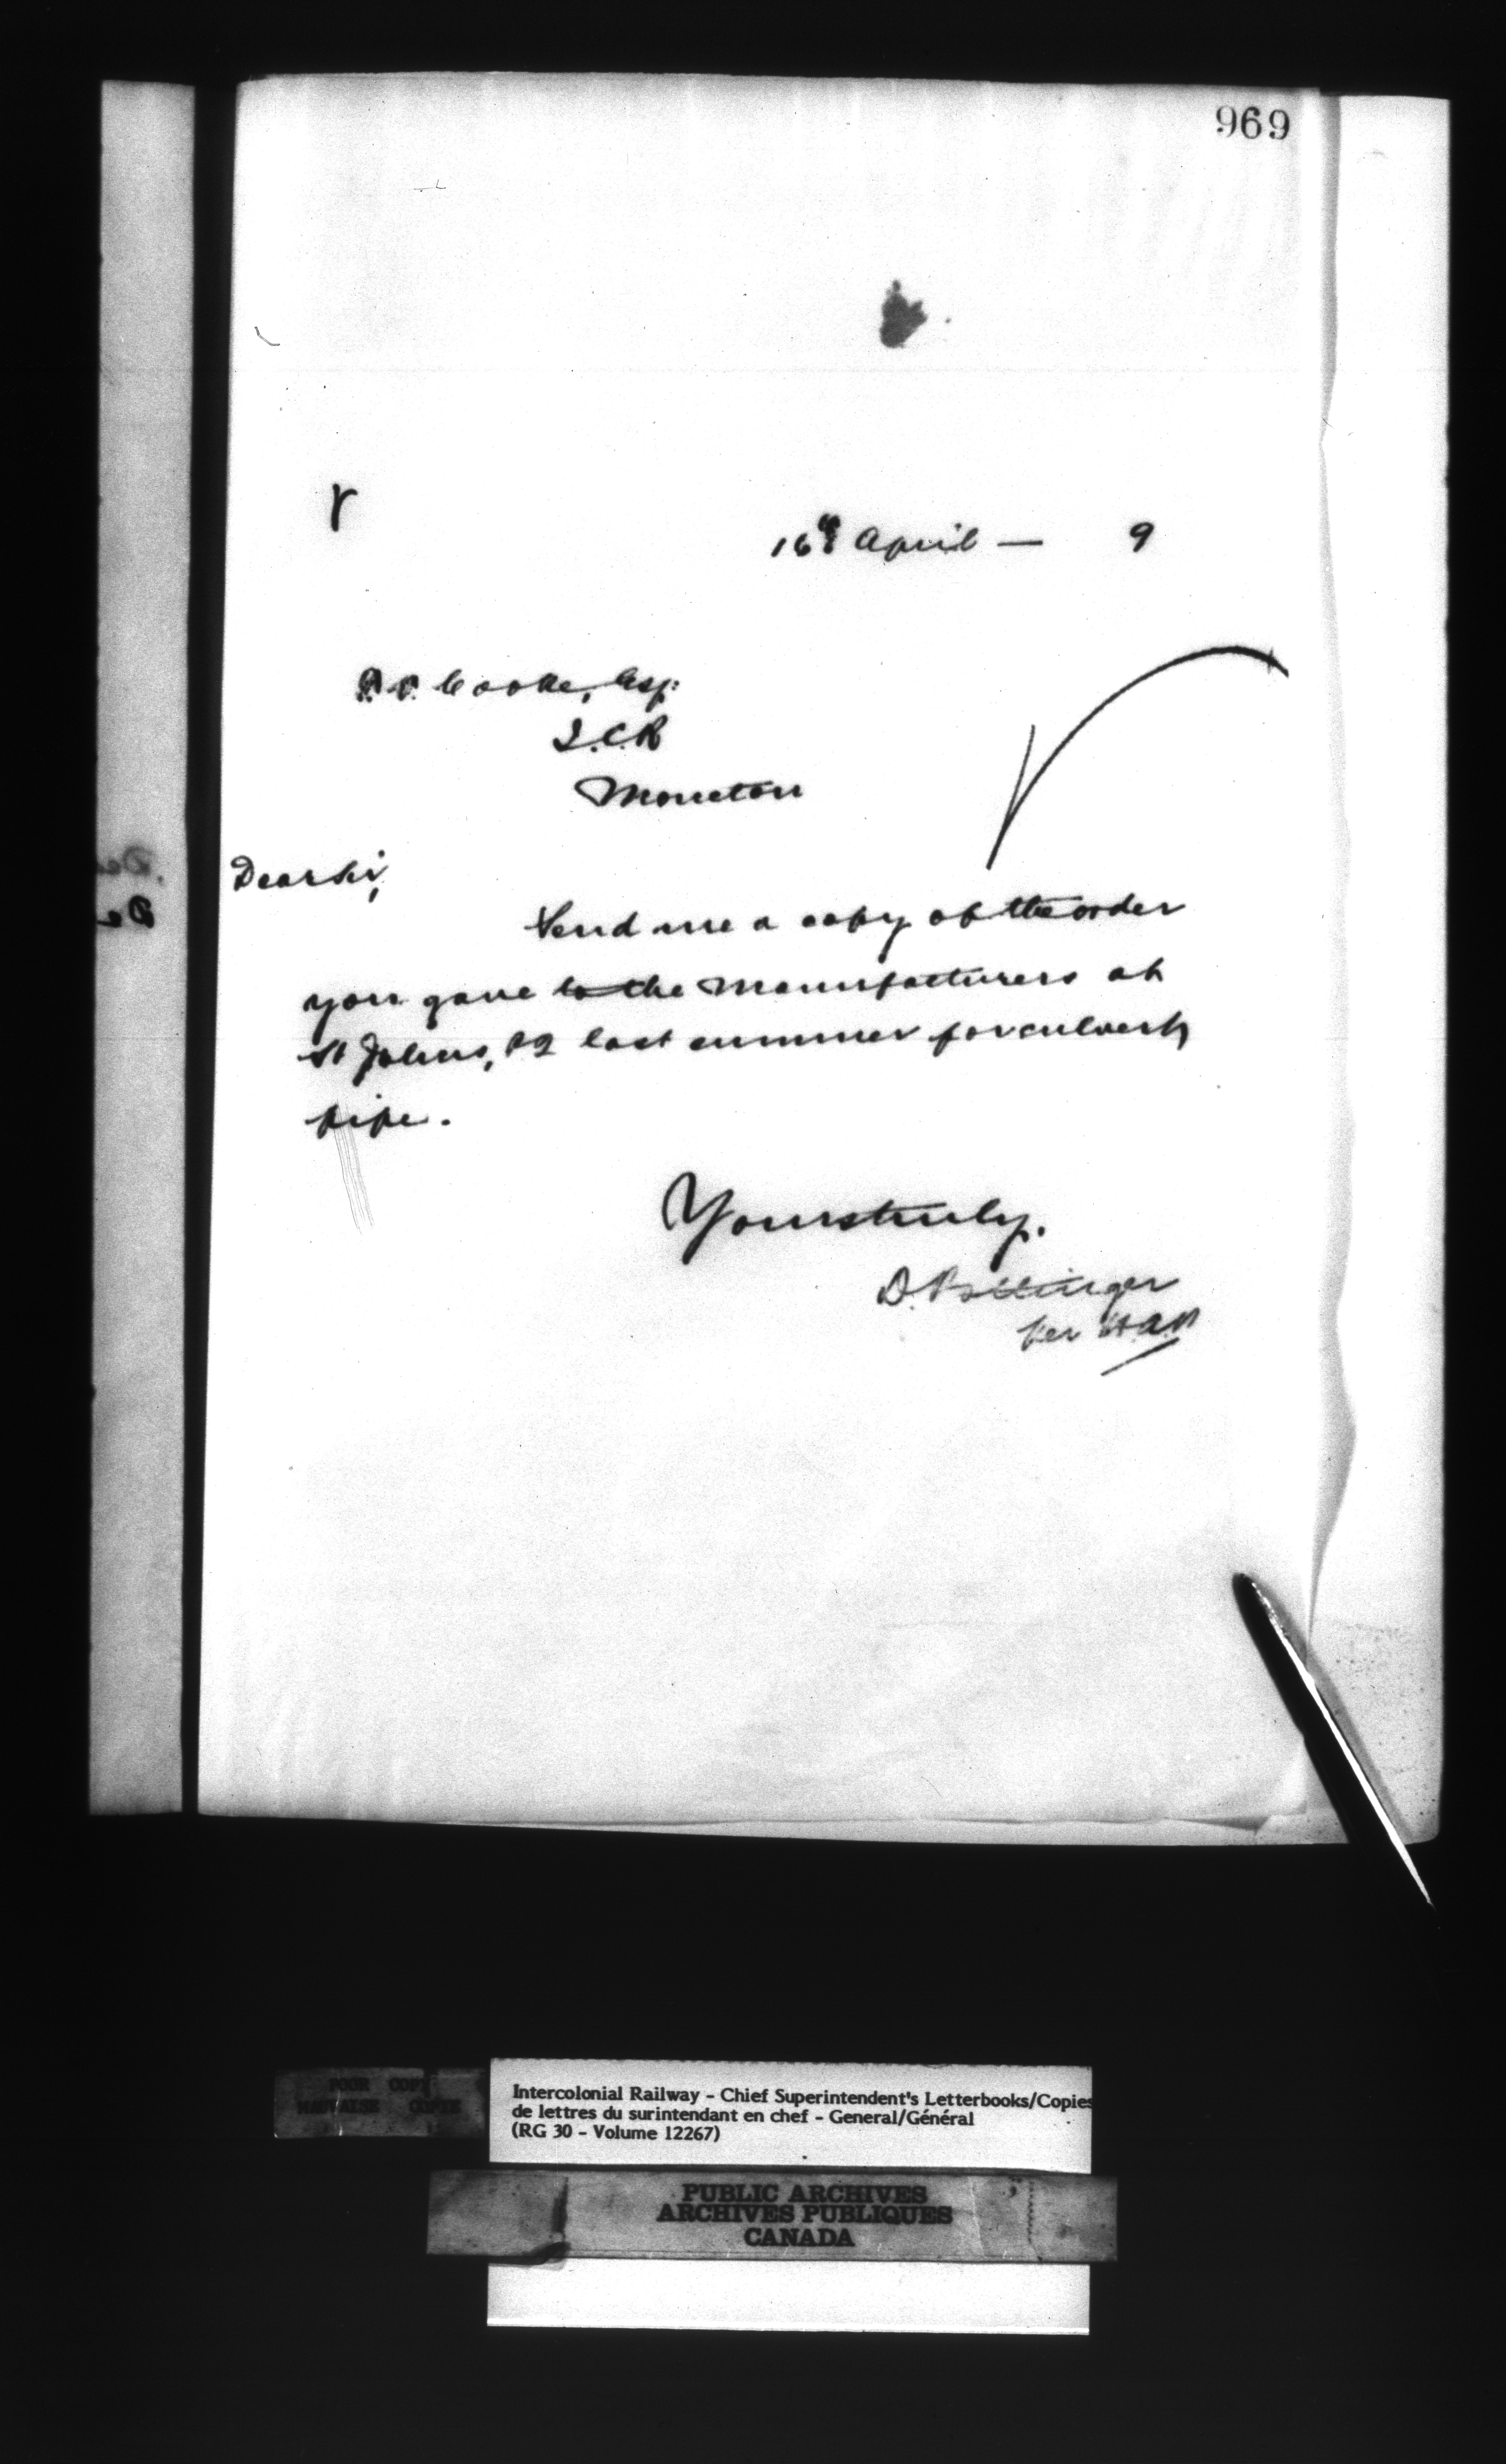 969
16th April — 9
P. P. Cooke, Esq:
I.C.R
Moncton
Dear Sir,
Send me a copy of the order
you gave to the Manufacturers at
St Johns, PQ last summer for culvert
pipe.
Yours truly.
D. Pottinger
per H.A.P
POOR COPY
MAUVAISE COPIE
Intercolonial Railway - Chief Superintendent's Letterbooks/Copies
de lettres du surintendant en chef - General/Général
(RG 30 - Volume 12267)
PUBLIC ARCHIVES
ARCHIVES PUBLIQUES
CANADA